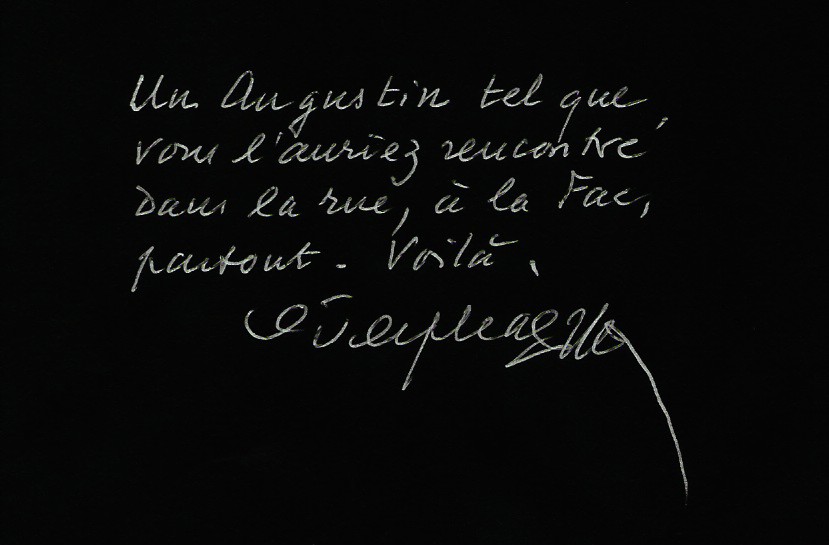 Un Augustin tel que
vous l'auriez rencontré
dans la rue, à la Fac,
partout. Voilà.